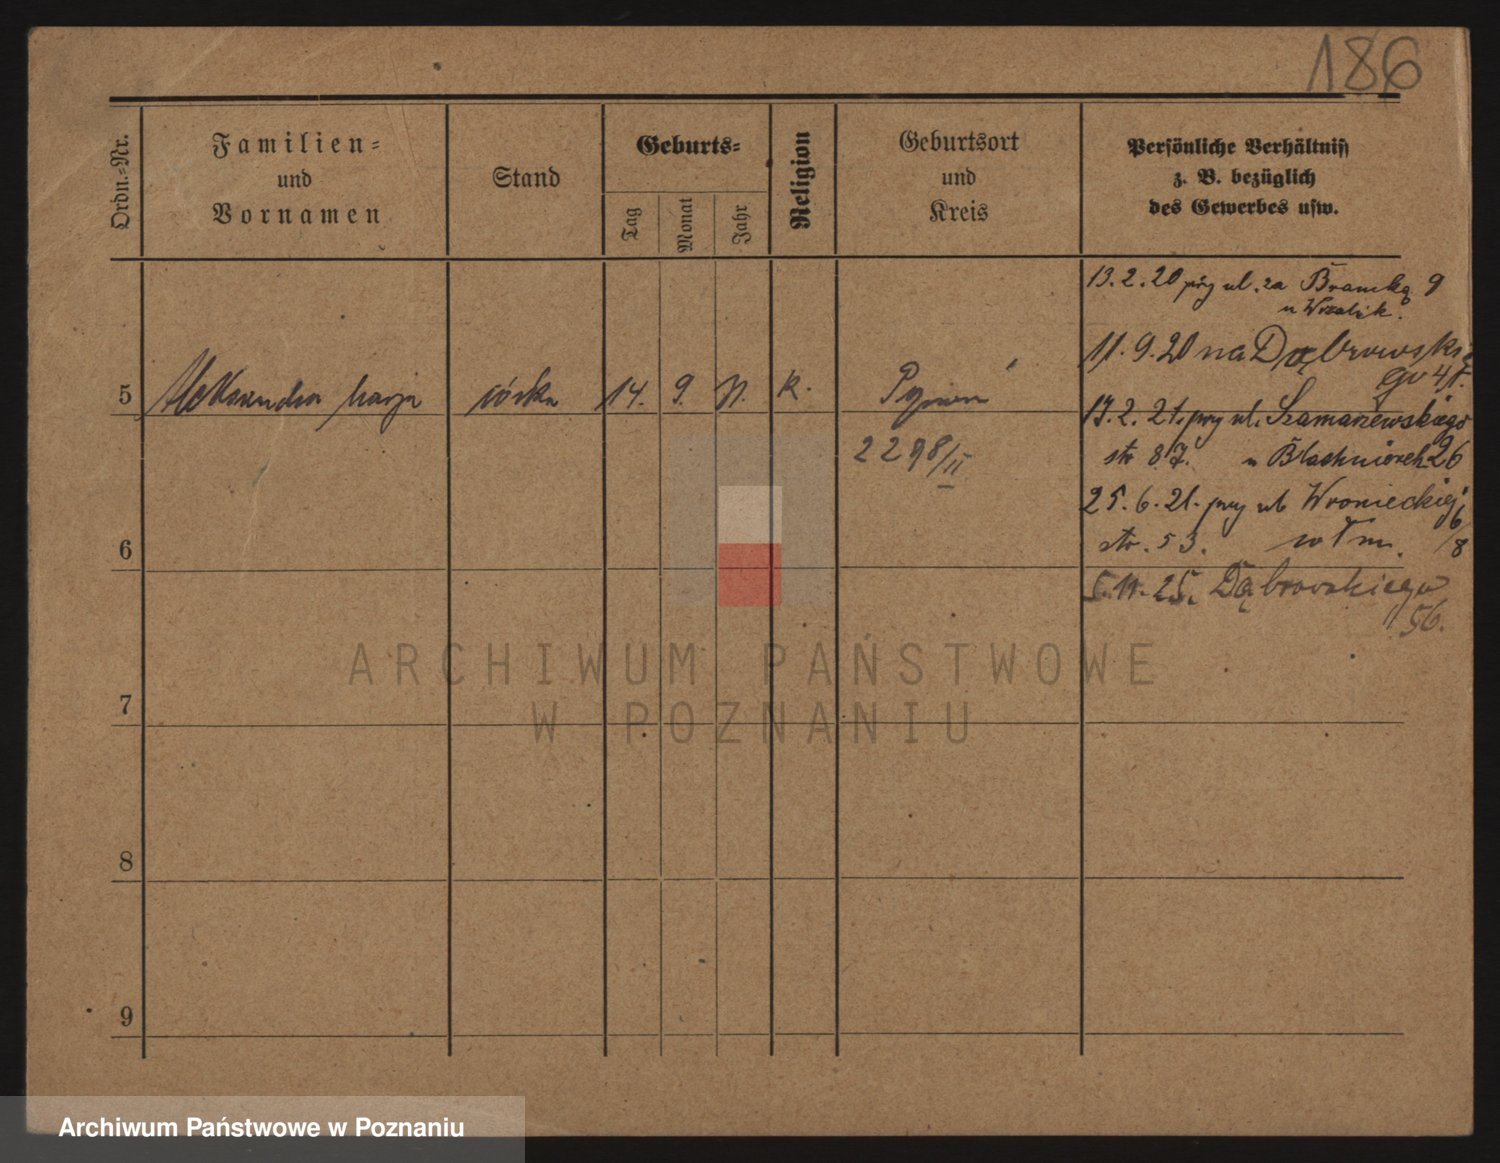 186
Ordn.-Nr.
Familien-
und
Vornamen
Stand
Geburts-
Tag
Monat
Jahr
Religion
Geburtsort
und
Kreis
Persönliche Verhältniss
z. B. bezüglich
des Gewerbes usw.
13.2.20 przy ul. za Bramką 9
u
11.9.20 na Dąbrowskie
go 41.
5
Aleksandra Marja
córka
14.
9.
k.
Poznań
2298/II
2.21. przy ul. Szamarzewskiego
str 87. u 26
25.6.21. przy ul. Wronieckiej 6/8
str. 53.
6
5.11.25. Dąbrowskiego
56.
ARCHIWUM PAŃSTWOWE
W POZNANIU
7
8
9
Archiwum Państwowe w Poznaniu